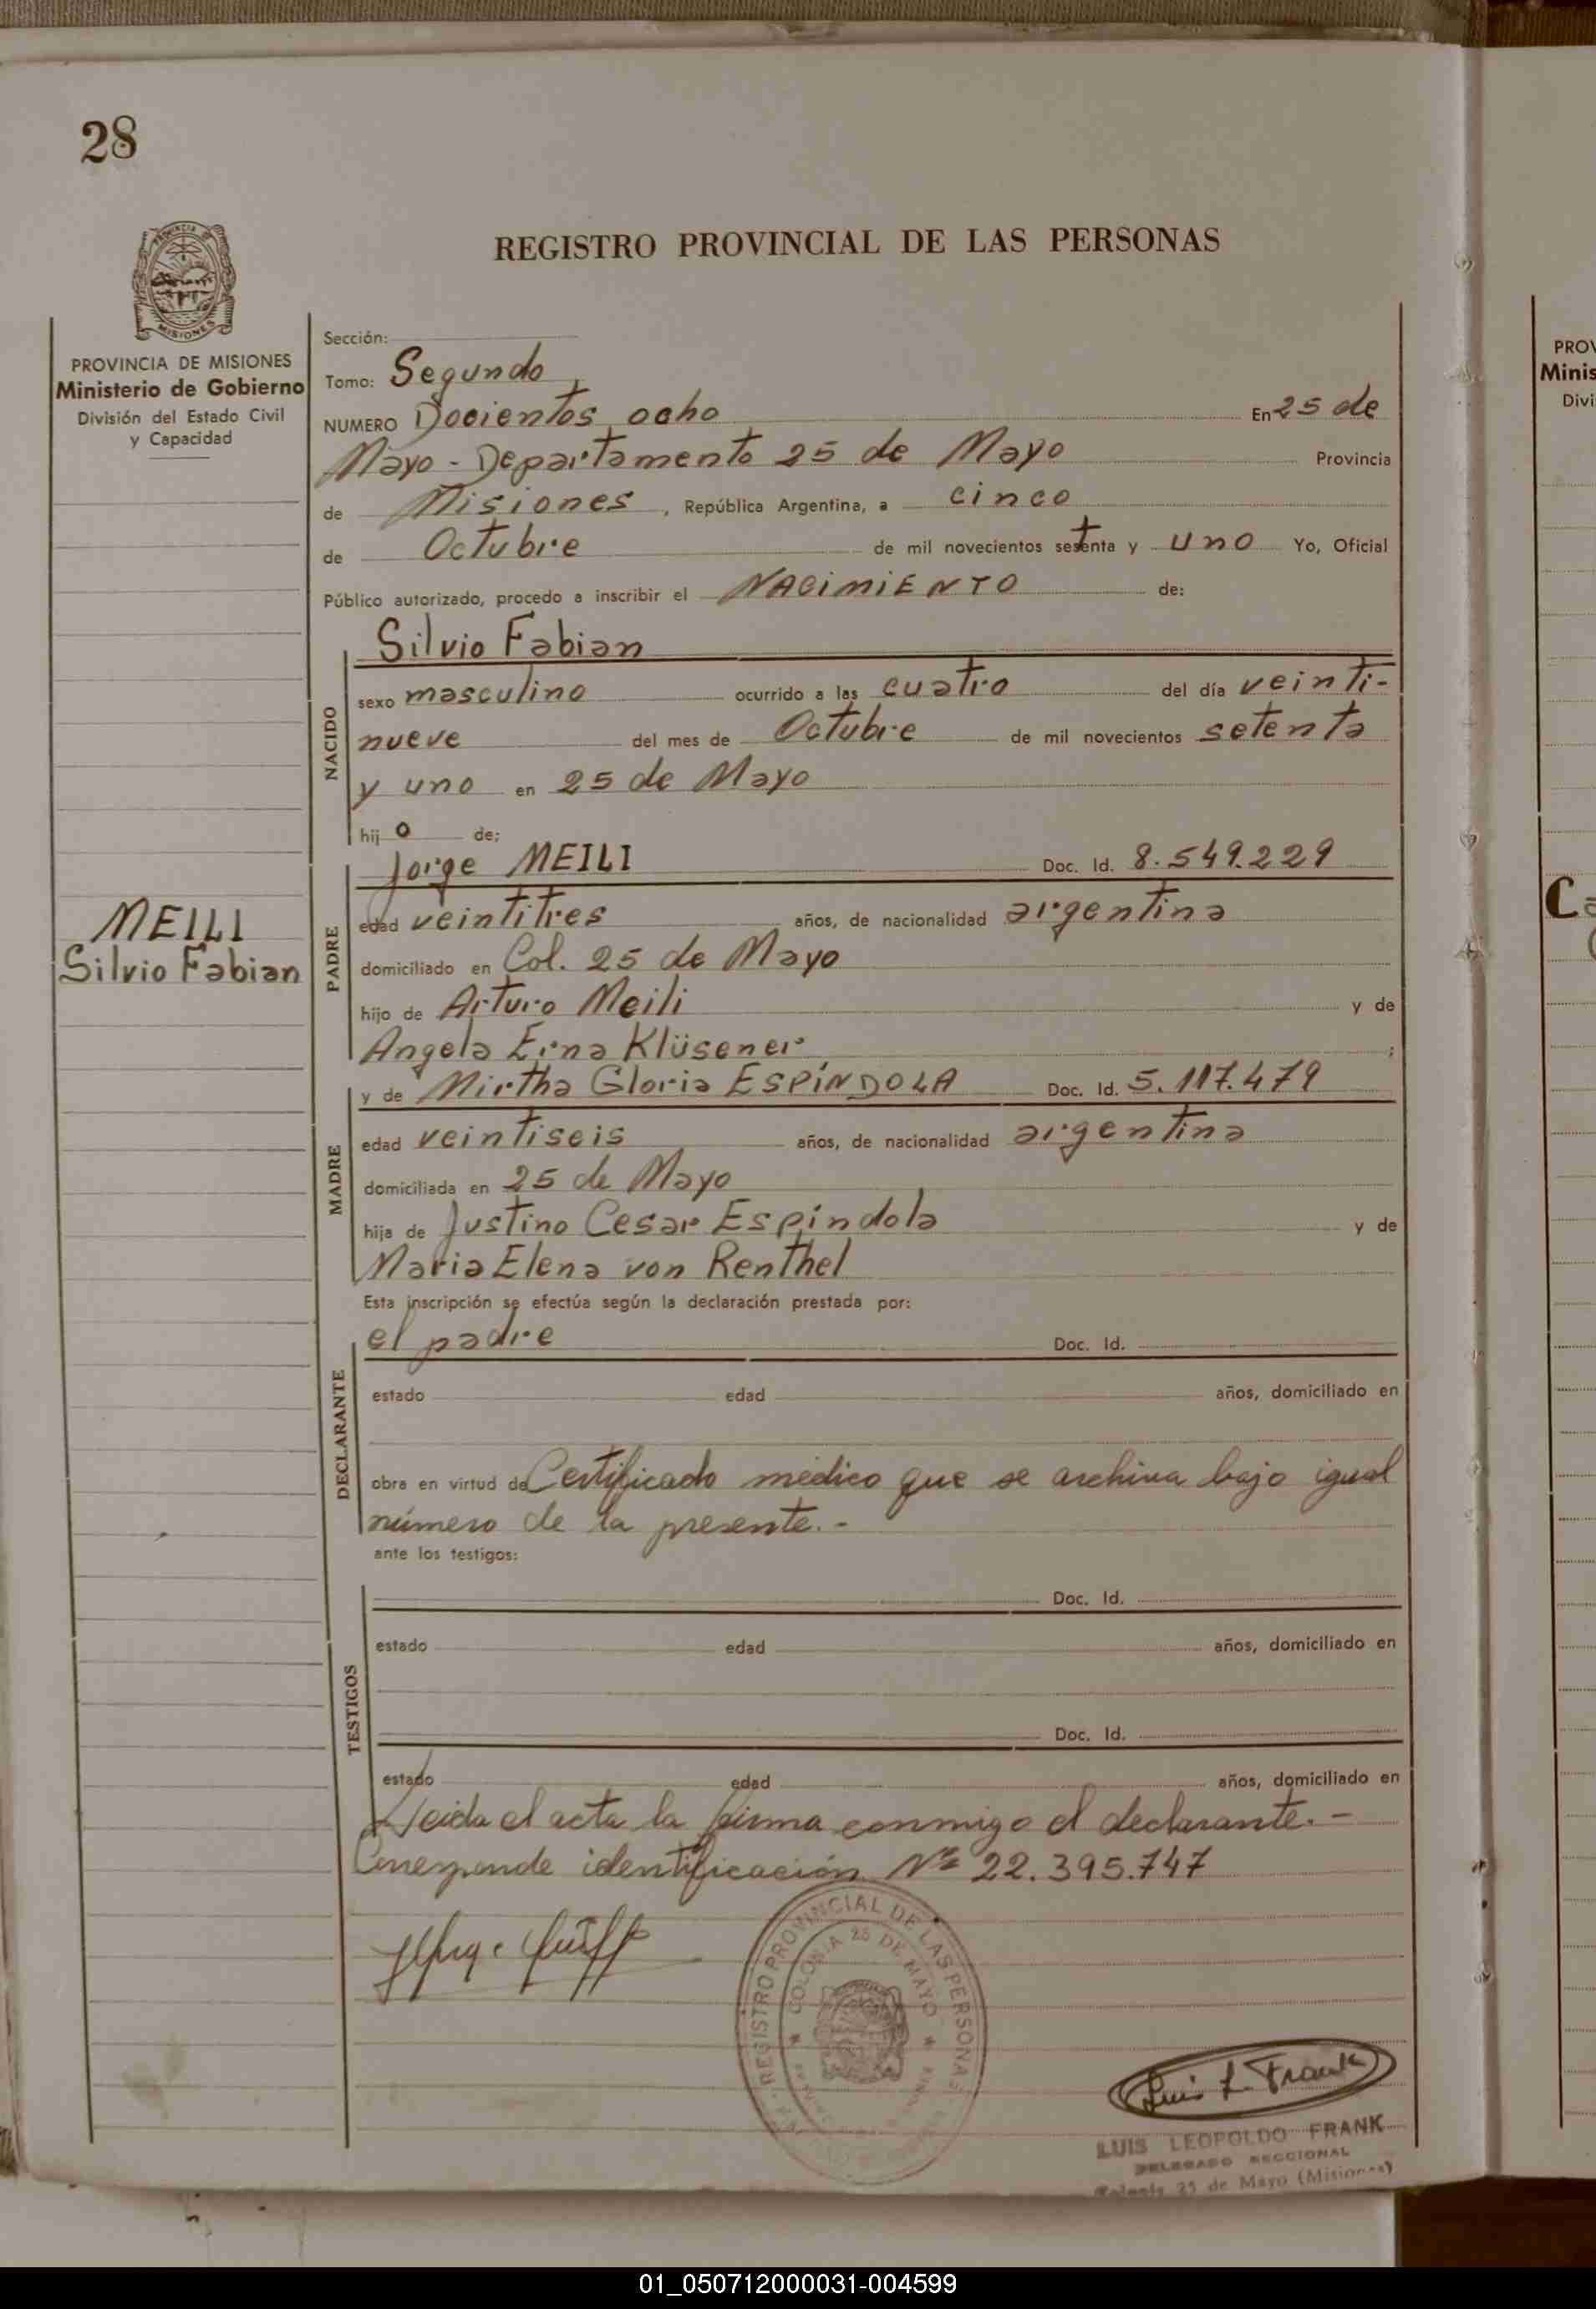 28
REGISTRO PROVINCIAL DE LAS PERSONAS
PROVINCIA DE MISIONES
Ministerio de Gobierno
División del Estado Civil
y Capacidad
Sección:
Tomo: Segundo
NUMERO Docientos ocho En 25 de
Mayo - Departamento 25 de Mayo Provincia
de Misiones, República Argentina, a cinco
de Octubre de mil novecientos setenta y uno Yo, Oficial
Público autorizado, procedo a inscribir el NACIMIENTO de:
NACIDO
Silvio Fabian
sexo masculino ocurrido a las cuatro del día veinti-
nueve del mes de Octubre de mil novecientos setenta
y uno en 25 de Mayo
hijo de:
PADRE
Jorge MEILI Doc. Id. 8.549.229
edad veintitres años, de nacionalidad argentina
domiciliado en Col. 25 de Mayo
hijo de Arturo Meili y de
Angela Erna Klüsener ;
MEILI
Silvio Fabian
MADRE
y de Mirtha Gloria ESPÍNDOLA Doc. Id. 5.117.479
edad veintiseis años, de nacionalidad argentina
domiciliada en 25 de Mayo
hija de Justino Cesar Espíndola y de
Maria Elena von Renthel
Esta inscripción se efectúa según la declaración prestada por:
DECLARANTE
el padre Doc. Id.
estado edad años, domiciliado en
obra en virtud de Certificado médico que se archiva bajo igual
número de la presente.-
ante los testigos:
TESTIGOS
Doc. Id.
estado edad años, domiciliado en
Doc. Id.
estado edad años, domiciliado en
Leida el acta la firma conmigo el declarante.-
Corresponde identificación Nº 22.395.747
REGISTRO PROVINCIAL DE LAS PERSONAS
COLONIA 25 DE MAYO
Luis L. Frank
LUIS LEOPOLDO FRANK
DELEGADO SECCIONAL
Colonia 25 de Mayo (Misiones)
PROV
Minis
Divi
Ca
01_050712000031-004599